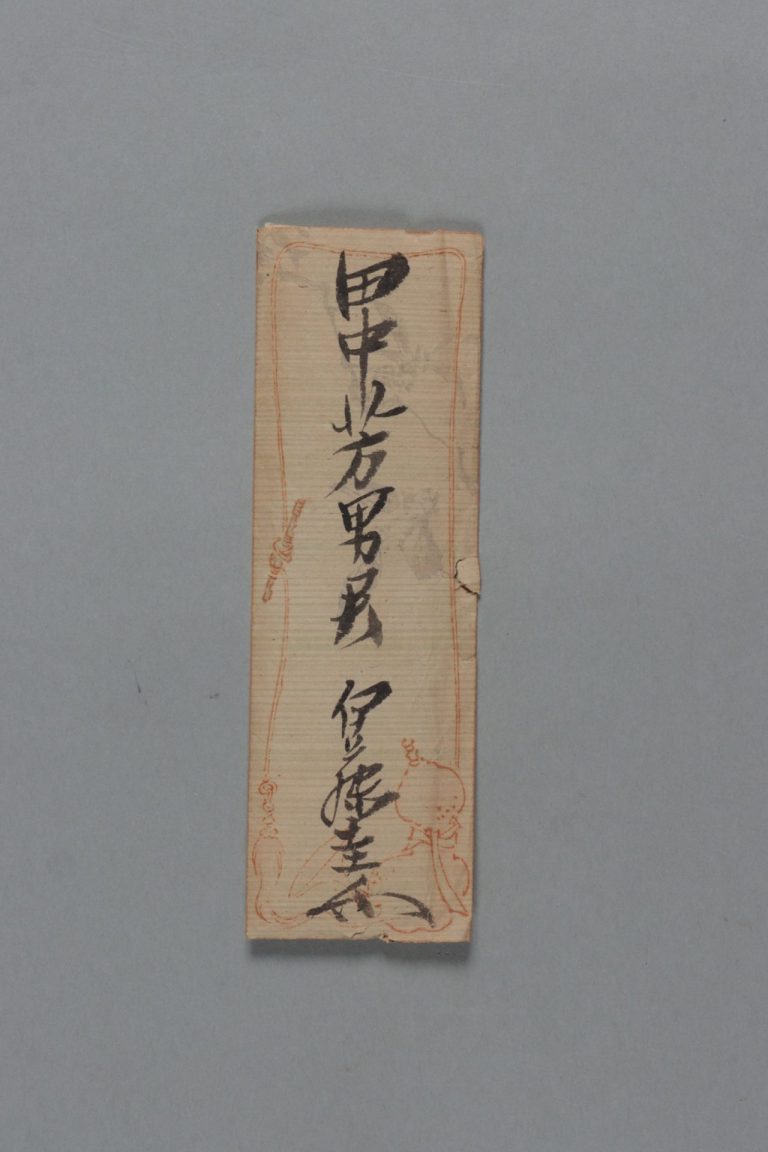 田中芳男君 伊藤圭介